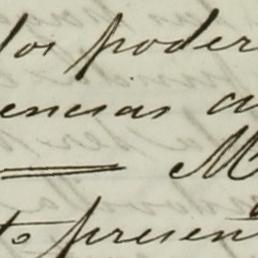 los poder
encias a
M
te presen